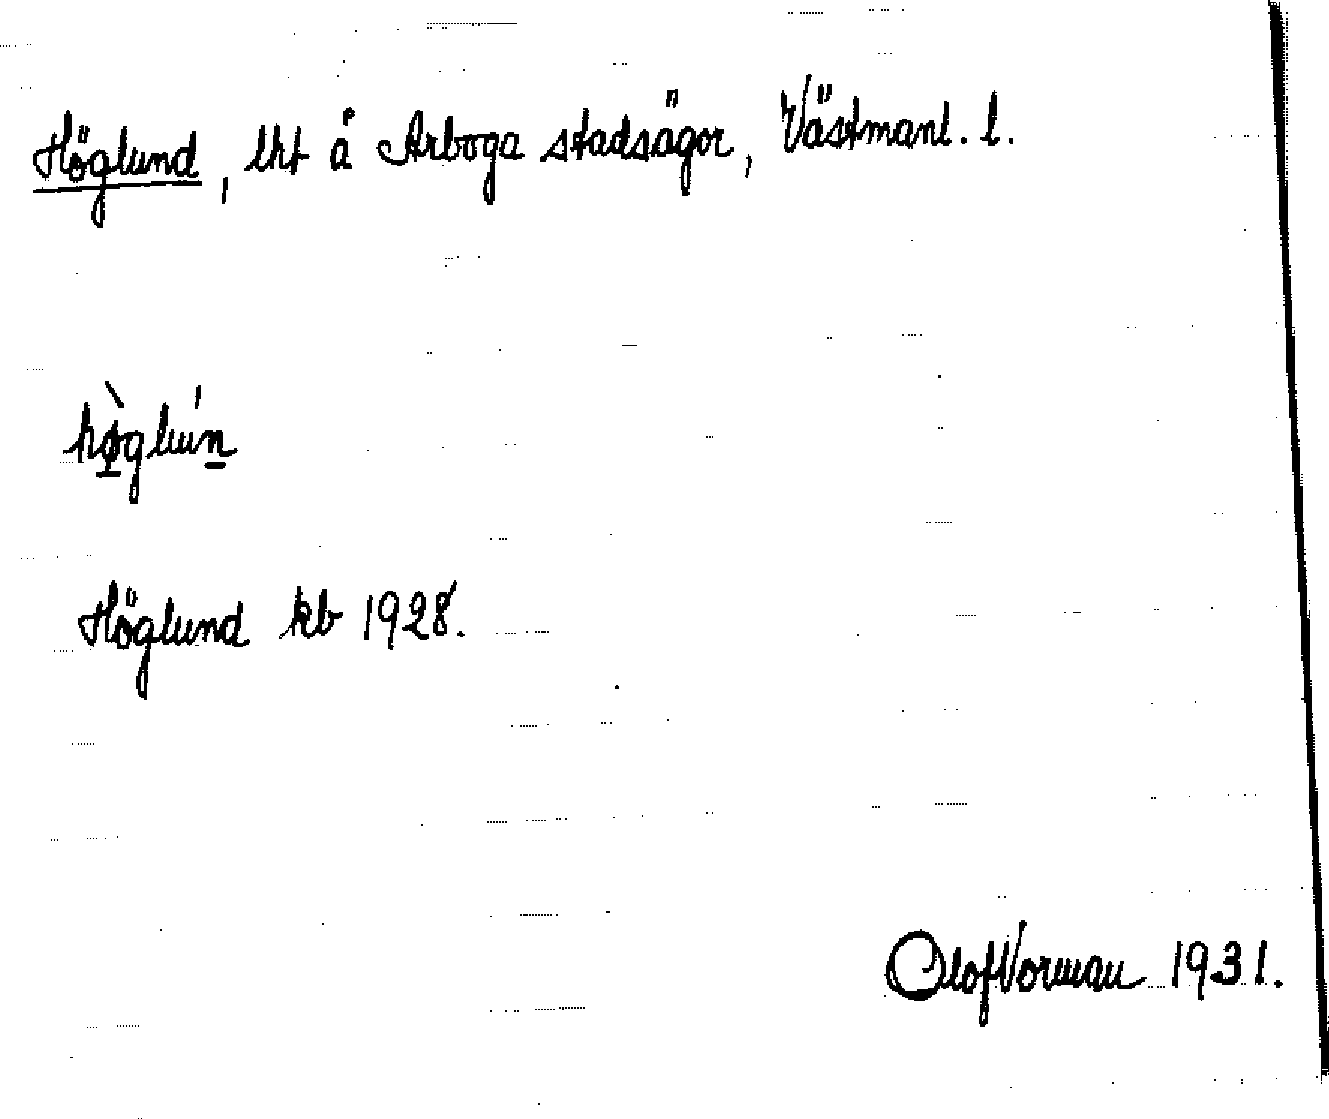 Höglund, lht å Arboga stadsägor, Västmanl. l.
hø̀glún
Höglund kb 1928.
Olof Vorman 1931.